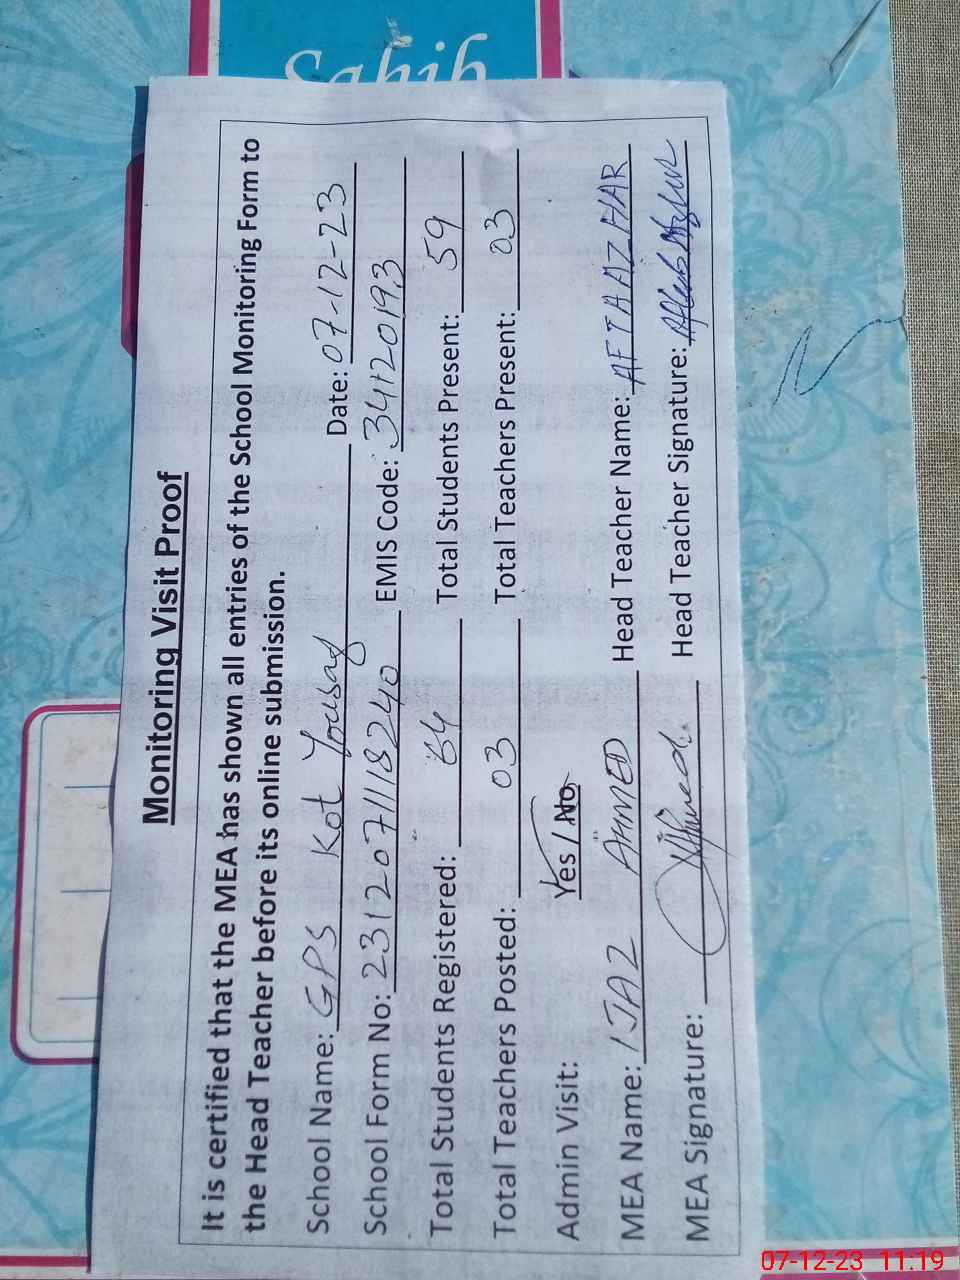 Sahib
Monitoring Visit Proof
It is certified that the MEA has shown all entries of the School Monitoring Form to
the Head Teacher before its online submission.
School Name: GPS Kot Yousaf Date: 07-12-23
School Form No: 2312071118240 EMIS Code: 34120193
Total Students Registered: 64 Total Students Present: 59
Total Teachers Posted: 03 Total Teachers Present: 03
Admin Visit: Yes / No
MEA Name: IJAZ AHMED Head Teacher Name: AFTA AZHAR
MEA Signature: Head Teacher Signature:
07-12-23 11:19